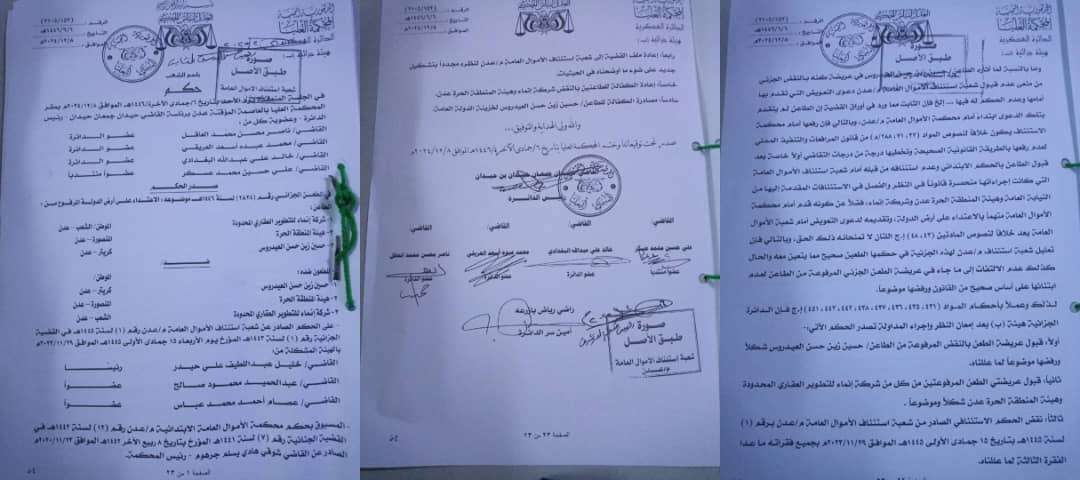 الجمهورية اليمنية
المحكمة العليا
الدائرة العسكرية
هيئة جزائية (ب)
صورة
طبق الأصل
شعبة استئناف الأموال العامة
باسم الشعب
حكم
المحكمة العليا بالعاصمة المؤقتة عدن برئاسة القاضي حيدان جمعان حيدان - رئيس
الدائرة - وعضوية كل من:
القاضي/ ناصر محسن محمد العاقل عضو الدائرة
القاضي/ محمد عبده أسعد العريقي عضو الدائرة
القاضي/ خالد علي عبدالله البغدادي عضو الدائرة
القاضي/ علي حسين محمد عسكر عضواً منتدباً
صدر الحكم
١- شركة إنماء للتطوير العقاري المحدودة الموطن/ الشعب - عدن
٢- هيئة المنطقة الحرة المنصورة - عدن
٣- حسين زين حسن العيدروس كريتر - عدن
ضد
المطعون ضده:
١- حسين زين حسن العيدروس كريتر - عدن
٢- هيئة المنطقة الحرة المنصورة - عدن
٣- شركة إنماء للتطوير العقاري المحدودة الشعب - عدن
- على الحكم الصادر عن شعبة استئناف الأموال العامة م/عدن رقم (١) لسنة ١٤٤٥هـ في القضية
الجزائية رقم (١) لسنة ١٤٤٣هـ المؤرخ يوم الأربعاء ١٥ جمادى الأولى ١٤٤٥هـ الموافق ٢٠٢٣/١١/٢٩م
بالهيئة المشكلة من:
القاضي/ خليل عبداللطيف علي حيدر رئيساً
القاضي/ عبدالحميد محمود صالح عضواً
القاضي/ عصام أحمد محمد عباس عضواً
- المسبوق بحكم محكمة الأموال العامة الابتدائية م/عدن رقم (١٢) لسنة ١٤٤٢هـ في
القضية الجنائية رقم (٧) لسنة ١٤٤١هـ المؤرخ بتاريخ ٨ ربيع الآخر ١٤٤٢هـ الموافق ٢٠٢٠/١١/٢٣م
الصادر عن القاضي شوقي هادي يسلم جرهوم - رئيس المحكمة.
الصفحة ١ من ٢٣
رابعاً: إعادة ملف القضية إلى شعبة استئناف الأموال العامة م/عدن لنظره مجدداً بتشكيل
جديد على ضوء ما أوضحناه في الحيثيات.
خامساً: إعادة الكفالة للطاعنتين بالنقض شركة إنماء وهيئة المنطقة الحرة عدن.
سادساً: مصادرة الكفالة للطاعن/ حسين زين حسن العيدروس لخزينة الدولة العامة.
والله ولي الهداية والتوفيق...
صدر تحت توقيعاتنا وختم المحكمة العليا بتاريخ ٧/جمادى الآخرة/١٤٤٦هـ الموافق ٢٠٢٤/١٢/٨م
رئيس الدائرة
القاضي/ القاضي/ القاضي/ القاضي/
علي حسين محمد عسكر خالد علي عبدالله البغدادي محمد عبده أسعد العريقي ناصر محسن محمد العاقل
عضواً منتدباً عضو الدائرة عضو الدائرة عضو الدائرة
راضي رياض بازرعة
أمين سر الدائرة
صورة
طبق الأصل
شعبة استئناف الأموال العامة
م/عدن
الصفحة ٢٣ من ٢٣
الجمهورية اليمنية
المحكمة العليا
الدائرة العسكرية
هيئة جزائية (ب)
صورة
طبق الأصل
من منعى عدم قبول شعبة استئناف الأموال العامة م/عدن دعوى التعويض التي تقدم بها
أمامها وعدم الحكم له فيها ... إلخ فإن الثابت مما ورد في أوراق القضية إن الطاعن لم يتقدم
بتلك الدعوى ابتداء أمام محكمة الأموال العامة م/عدن، وبالتالي فإن رفعها أمام محكمة
الاستئناف يكون خلافاً لنصوص المواد من قانون المرافعات والتنفيذ المدني
لعدم رفعها بالطريقة القانونية الصحيحة وتخطيها درجة من درجات التقاضي أولاً خاصة بعد
قبول الطاعن بالحكم الابتدائي وعدم استئنافه من قبله أمام شعبة استئناف الأموال العامة
التي كانت إجراءاتها منحصرة قانوناً في النظر والفصل في الاستئنافات المقدمة إليها من
النيابة العامة وهيئة المنطقة الحرة عدن وشركة إنماء، فضلاً عن كونه قدم أمام محكمة
الأموال العامة متهماً بالاعتداء على أرض الدولة، وتقديمه لدعوى التعويض أمام شعبة الأموال
العامة يعد خلافاً لنصوص المادتين (٤٣، ٤٨) إ.ج اللتان لا تمنحانه ذلك الحق، وبالتالي فإن
تعليل شعبة استئناف م/عدن لهذه الجزئية في حكمها الطعين صحيح مما يتعين معه والحال
كذلك عدم الالتفات إلى ما جاء في عريضة الطعن الجزئي المرفوعة من الطاعن لعدم
ابتنائها على أساس صحيح من القانون ورفضها موضوعاً.
الجزائية هيئة (ب) بعد إمعان النظر وإجراء المداولة تصدر الحكم الآتي:-
أولاً: قبول عريضة الطعن بالنقض المرفوعة من الطاعن/ حسين زين حسن العيدروس شكلاً
ورفضها موضوعاً لما عللناه.
ثانياً: قبول عريضتي الطعن المرفوعتين من كل من شركة إنماء للتطوير العقاري المحدودة
وهيئة المنطقة الحرة عدن شكلاً وموضوعاً.
ثالثاً: نقض الحكم الاستئنافي الصادر من شعبة استئناف الأموال العامة م/عدن برقم (١)
لسنة ١٤٤٥هـ بتاريخ ١٥ جمادى الأولى ١٤٤٥هـ الموافق ٢٠٢٣/١١/٢٩م بجميع فقراته ما عدا
الفقرة الثالثة لما عللناه.